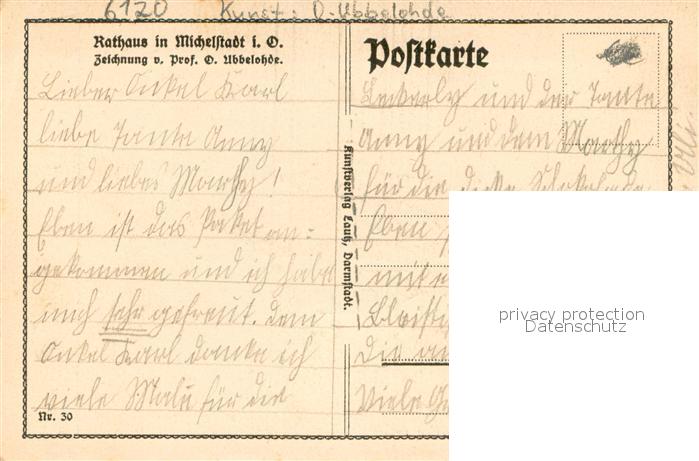 6120 Kunst: O. Ubbelohde
Rathaus in Michelstadt i. O.
Zeichnung v. Prof. O. Ubbelohde.
Postkarte
Lieber Onkel Karl
liebe Tante Anny
und liebes Marthy!
Eben ist das Paket an-
gekommen und ich habe
mich sehr gefreut. Dem
Onkel Karl danke ich
viele Male für die
Nr. 30
Kunstverlag Lautz, Darmstadt.
und der Tante
Anny und dem Marthy
für die Schokolade
Eben
mit
Bleisti
die an
Viele
privacy protection
Datenschutz